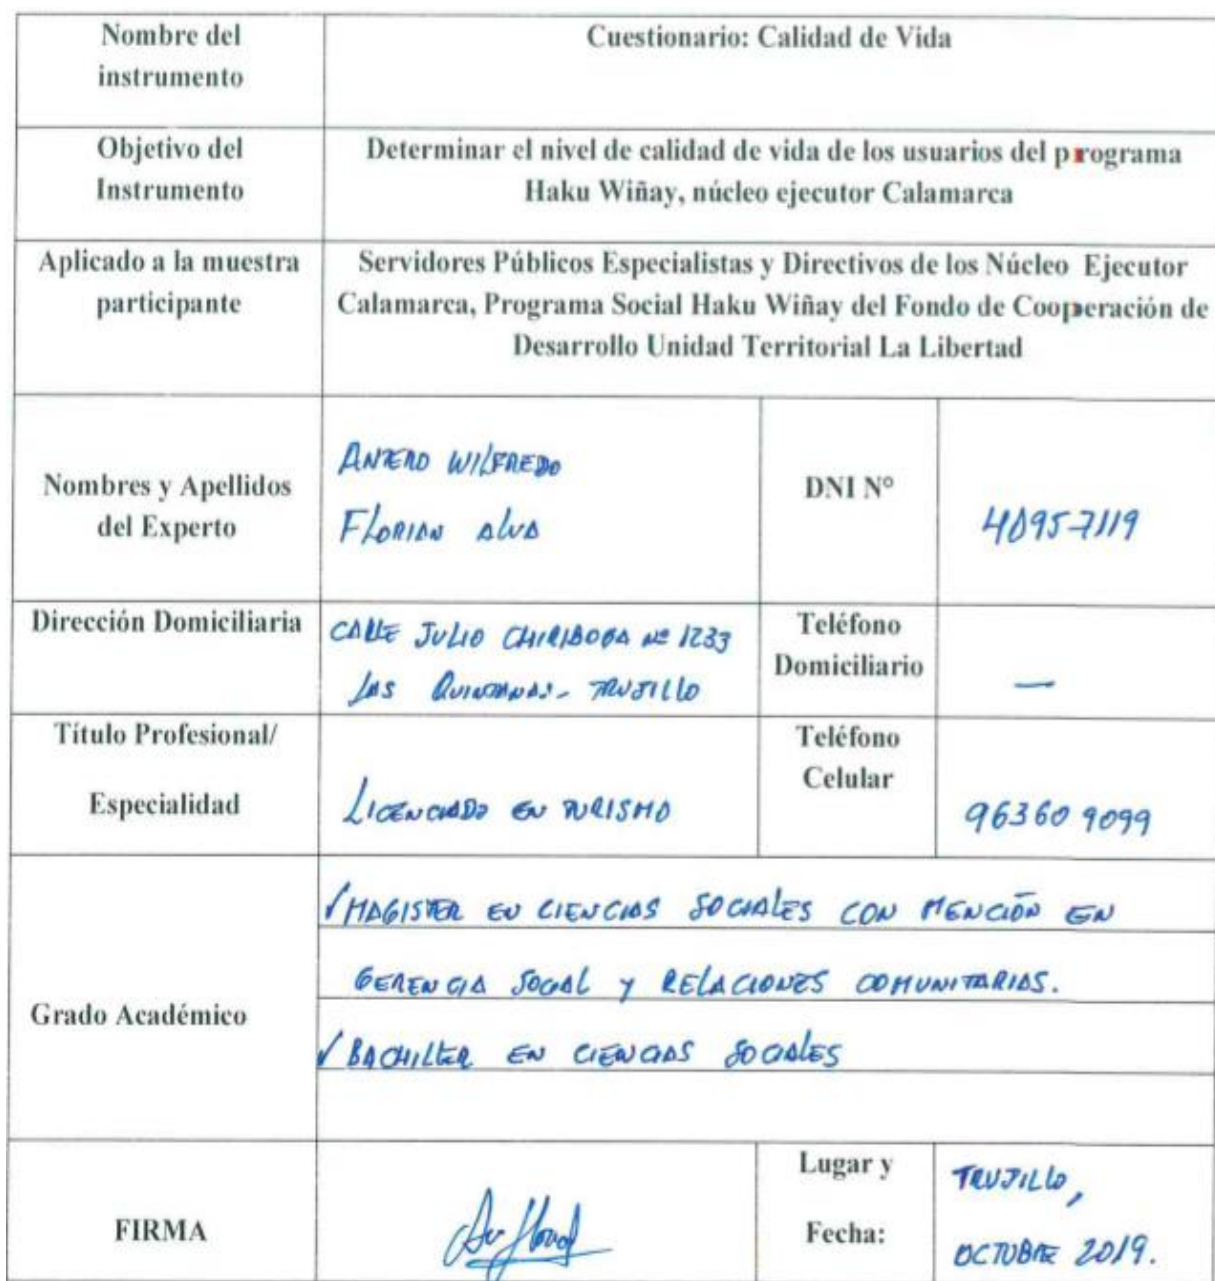 Nombre del
instrumento
Cuestionario: Calidad de Vida
Objetivo del
Instrumento
Determinar el nivel de calidad de vida de los usuarios del programa
Haku Wiñay, núcleo ejecutor Calamarca
Aplicado a la muestra
participante
Servidores Públicos Especialistas y Directivos de los Núcleo Ejecutor
Calamarca, Programa Social Haku Wiñay del Fondo de Cooperación de
Desarrollo Unidad Territorial La Libertad
Nombres y Apellidos
del Experto
ANTERO WILFREDO
FLORIAN ALVA
DNI N°
40957119
Dirección Domiciliaria
CALLE JULIO CHIRIBOGA Nº 1233
LAS QUINTANAS - TRUJILLO
Teléfono
Domiciliario
—
Título Profesional/
Especialidad
LICENCIADO EN TURISMO
Teléfono
Celular
96360 9099
Grado Académico
✓ MAGISTER EN CIENCIAS SOCIALES CON MENCIÓN EN
GERENCIA SOCIAL Y RELACIONES COMUNITARIAS.
✓ BACHILLER EN CIENCIAS SOCIALES
FIRMA
Lugar y
Fecha:
TRUJILLO,
OCTUBRE 2019.